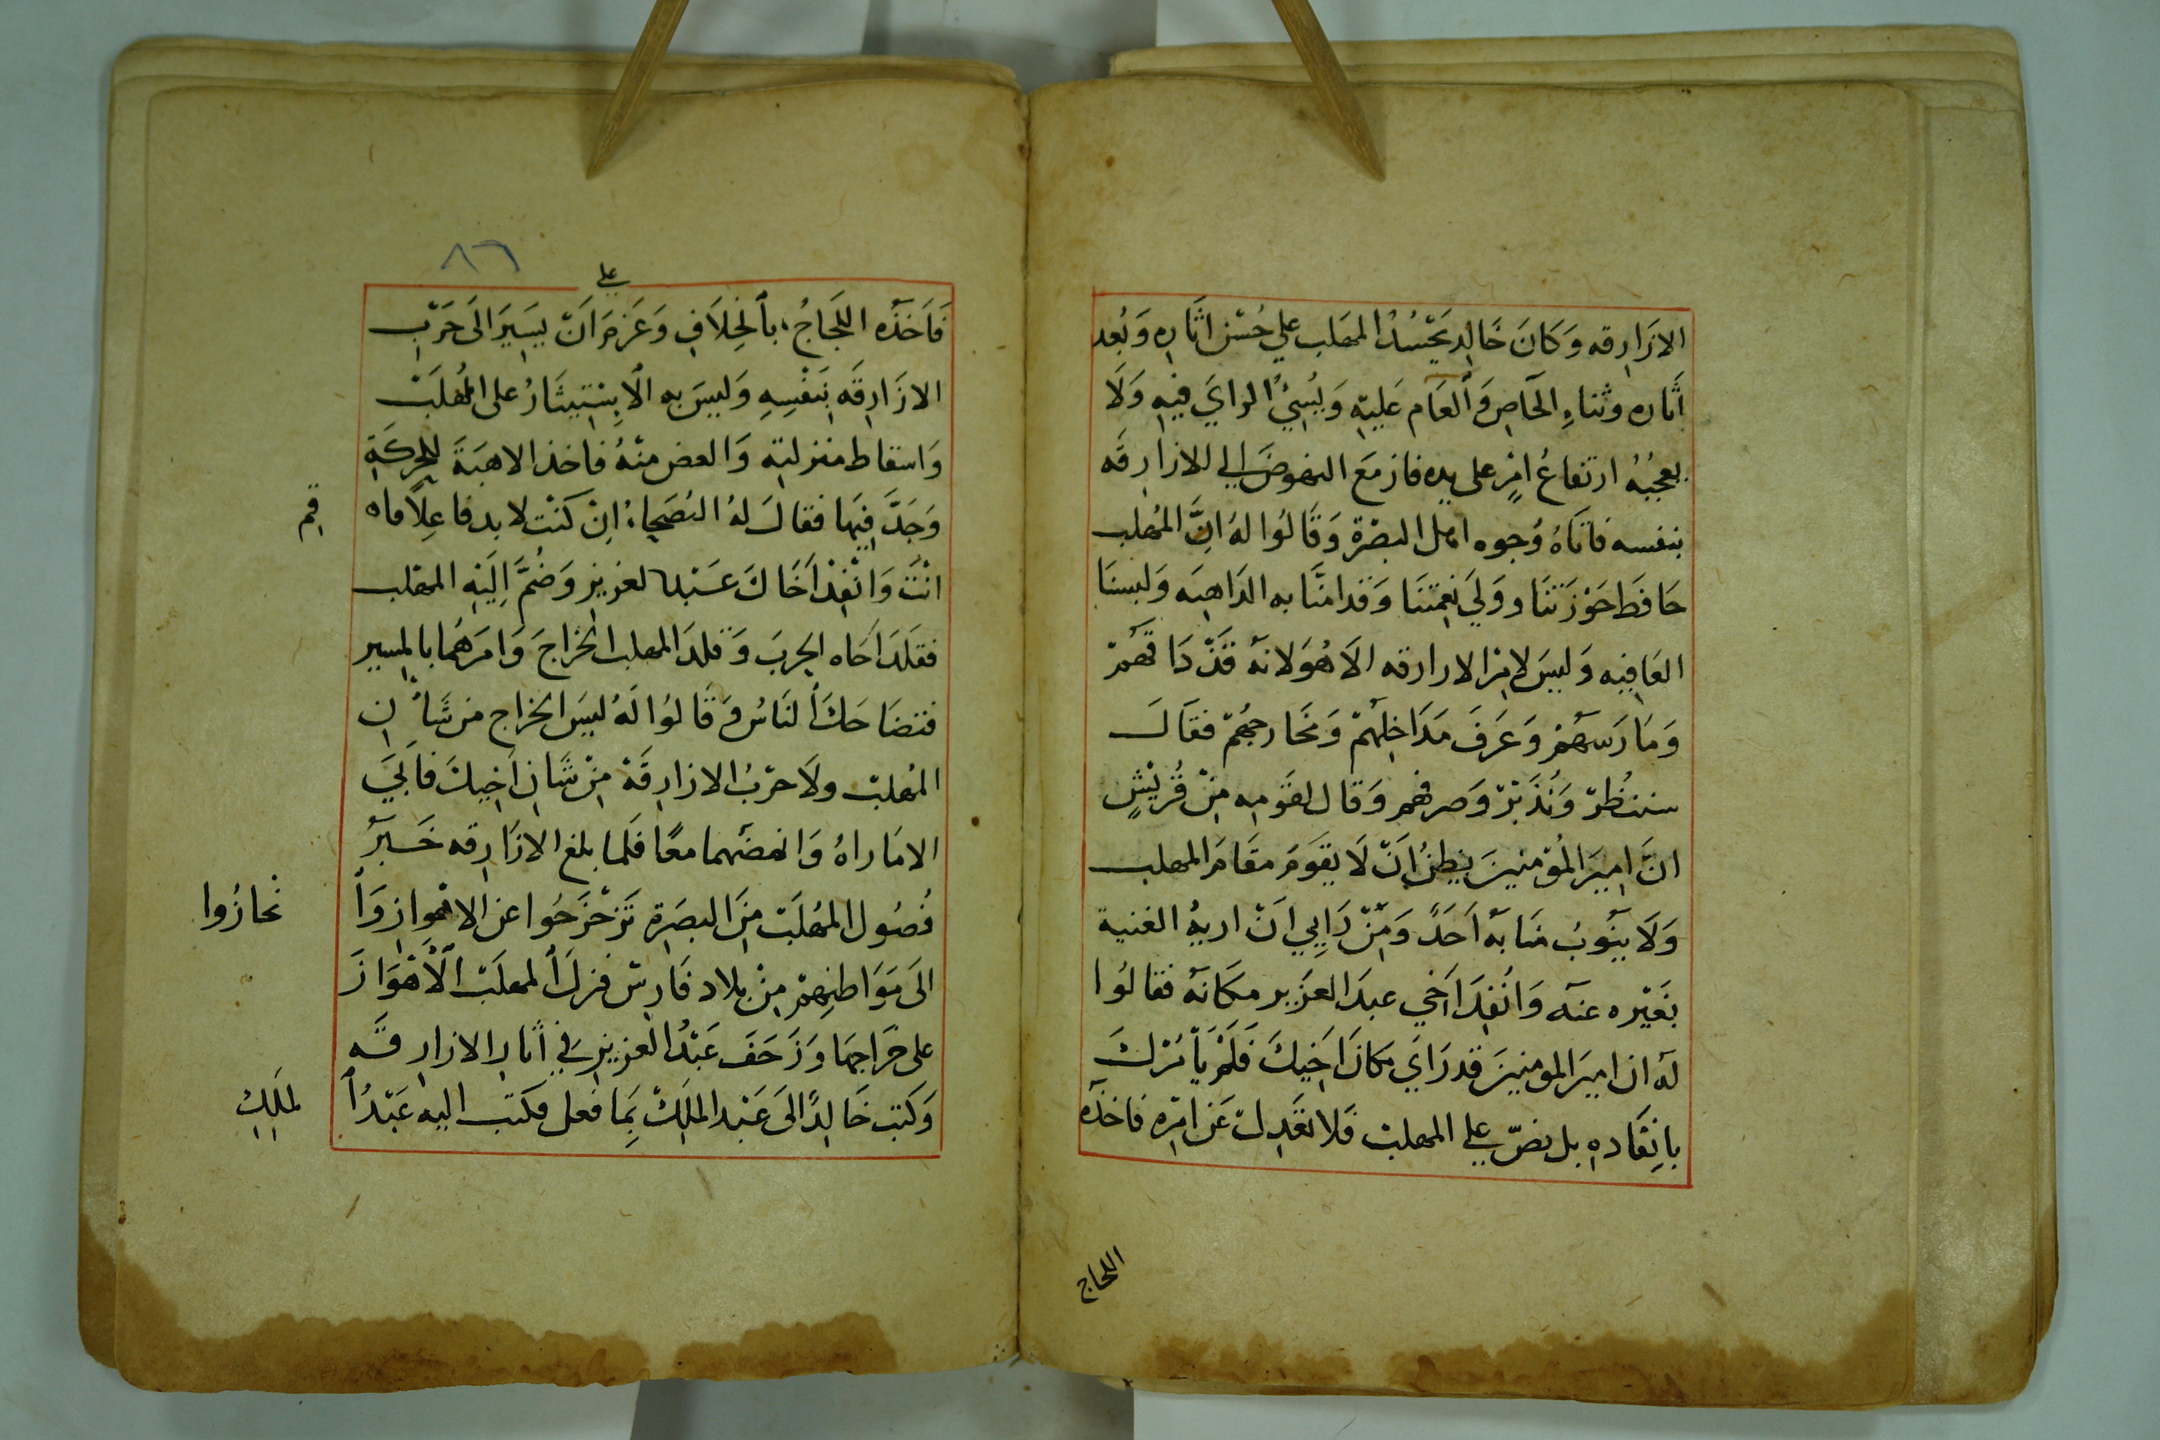 الازَارقه وَكَانَ خَالِد يَحْسُدُ المهَلب علي حُسْن اثَارِه وَبُعد
أثَاره وثناءِ الخَاصِ وَالعَام عَليْهِ وَيُسِيُ الراي فيْهِ وَلَا
يعجبُهُ ارتفاعُ امْرٍ على يده فازمَعَ النهوضَ الي للازارقَه
بنفسه فاتَاهُ وُجوه اهل البصْرة وَقَالُوا لهُ انَّ المُهلب
حَافظ حَوْزَتنَا ووَلي نِعْمتنَا وَقد امنَّا به الدَاهيَه وَلبسنَا
العَافيِه وَليسَ لامْر الازارقه الَا هُوَ لانهُ قَدْ دَاقهُمْ
وَمَارَسهُمْ وَعَرَفَ مَدَاخِلَهُمْ وَمَخَارجهُمْ فقَالَ
سننظُر وَنُدَبّرْ وَصرفهم وَقال لقوَمِه مِنْ قُريْشٍ
انَّ امِيرَ المُؤمنينَ يظنُ انَّ لَا يقوَمَ مقَامَ المهلب
وَلَا يَنُوبُ منَابهُ اَحَدً وَمِنْ رَايِي انَ اريهُ الغنية
بغَيْره عنهُ وَاُنفِدَ اَخي عبدَ العَزيز مكَانهُ فقالُوا
لهُ ان اميرَ المومنينَ قد رَايَ مكانَ اَخِيكَ فَلَمْ يَأمُرْكَ
بانِفَاده بل نصّ علي المهلبْ فَلا تعَدِلْ عَن امْرِه فاخذَه
اللجاج
٨٦
علي
فَاَخذَه اللجَاجُ بالخِلَافِ وَعَزمَ انَ يَسِيرَ الَى حَرْبِ
الازَارِقَه بنَفْسِهِ وَليسَ به الا الاِسْتِيثَارُ على المُهلَبْ
وَاسقاط منزلتِه وَالغض منْهُ فاخذ الاهبَةَ للحركَةِ
وَجَدَّ فيَها فقالَ لهُ النُصَحاءُ انِ كَنْت لابد فاعِلاً فاه
قِم
انْتَ وَانْفِدْ اَخَاكَ عَبْد العزيزِ وَضُمَّ اِليَهِ المهْلب
فقلَدَ اَخَاه الحرَبَ وَقلدَ المهلب الخرَاجَ وَامرَهُما بالمسير
فتضَاحَكَ النَاسُ وَقَالوُا لَهُ ليسَ الخراج من شَأن
المُهلبْ ولَا حرْبُ الازارِقَةْ مِنْ شَان اَخِيكَ فَاَبيَ
الا مَاراهُ وَانهضَهما معًا فَلما بلغ الازَارِقه خَبَرُ
فُصُول المهُلَبْ مِنَ البصَرةِ تَزْحْزَحُوا عن الاهْوازِ وَا
نْحازُوا
الَى مَوَاطِنِهِمْ مِنْ بلاد فَارِسْ فنزلَ المهلَبْ الْأهْوَازَ
على خراجهَا وَزَحَفَ عَبْدُ العزيزِ في أثارِ الازارِقَه
وَكتبَ خَالِدً الىَ عَبْد الملِكْ بِمَا فعل فكتب اليه عَبْدُا
لملِكِ